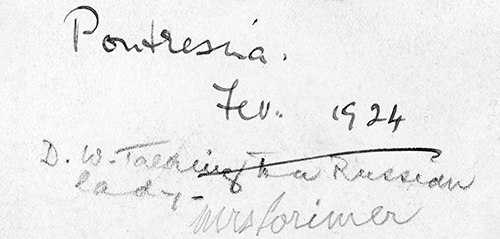 Pontresina.
Fev. 1924
D. W. Talking to a Russian
lady -
Mrs Lorimer